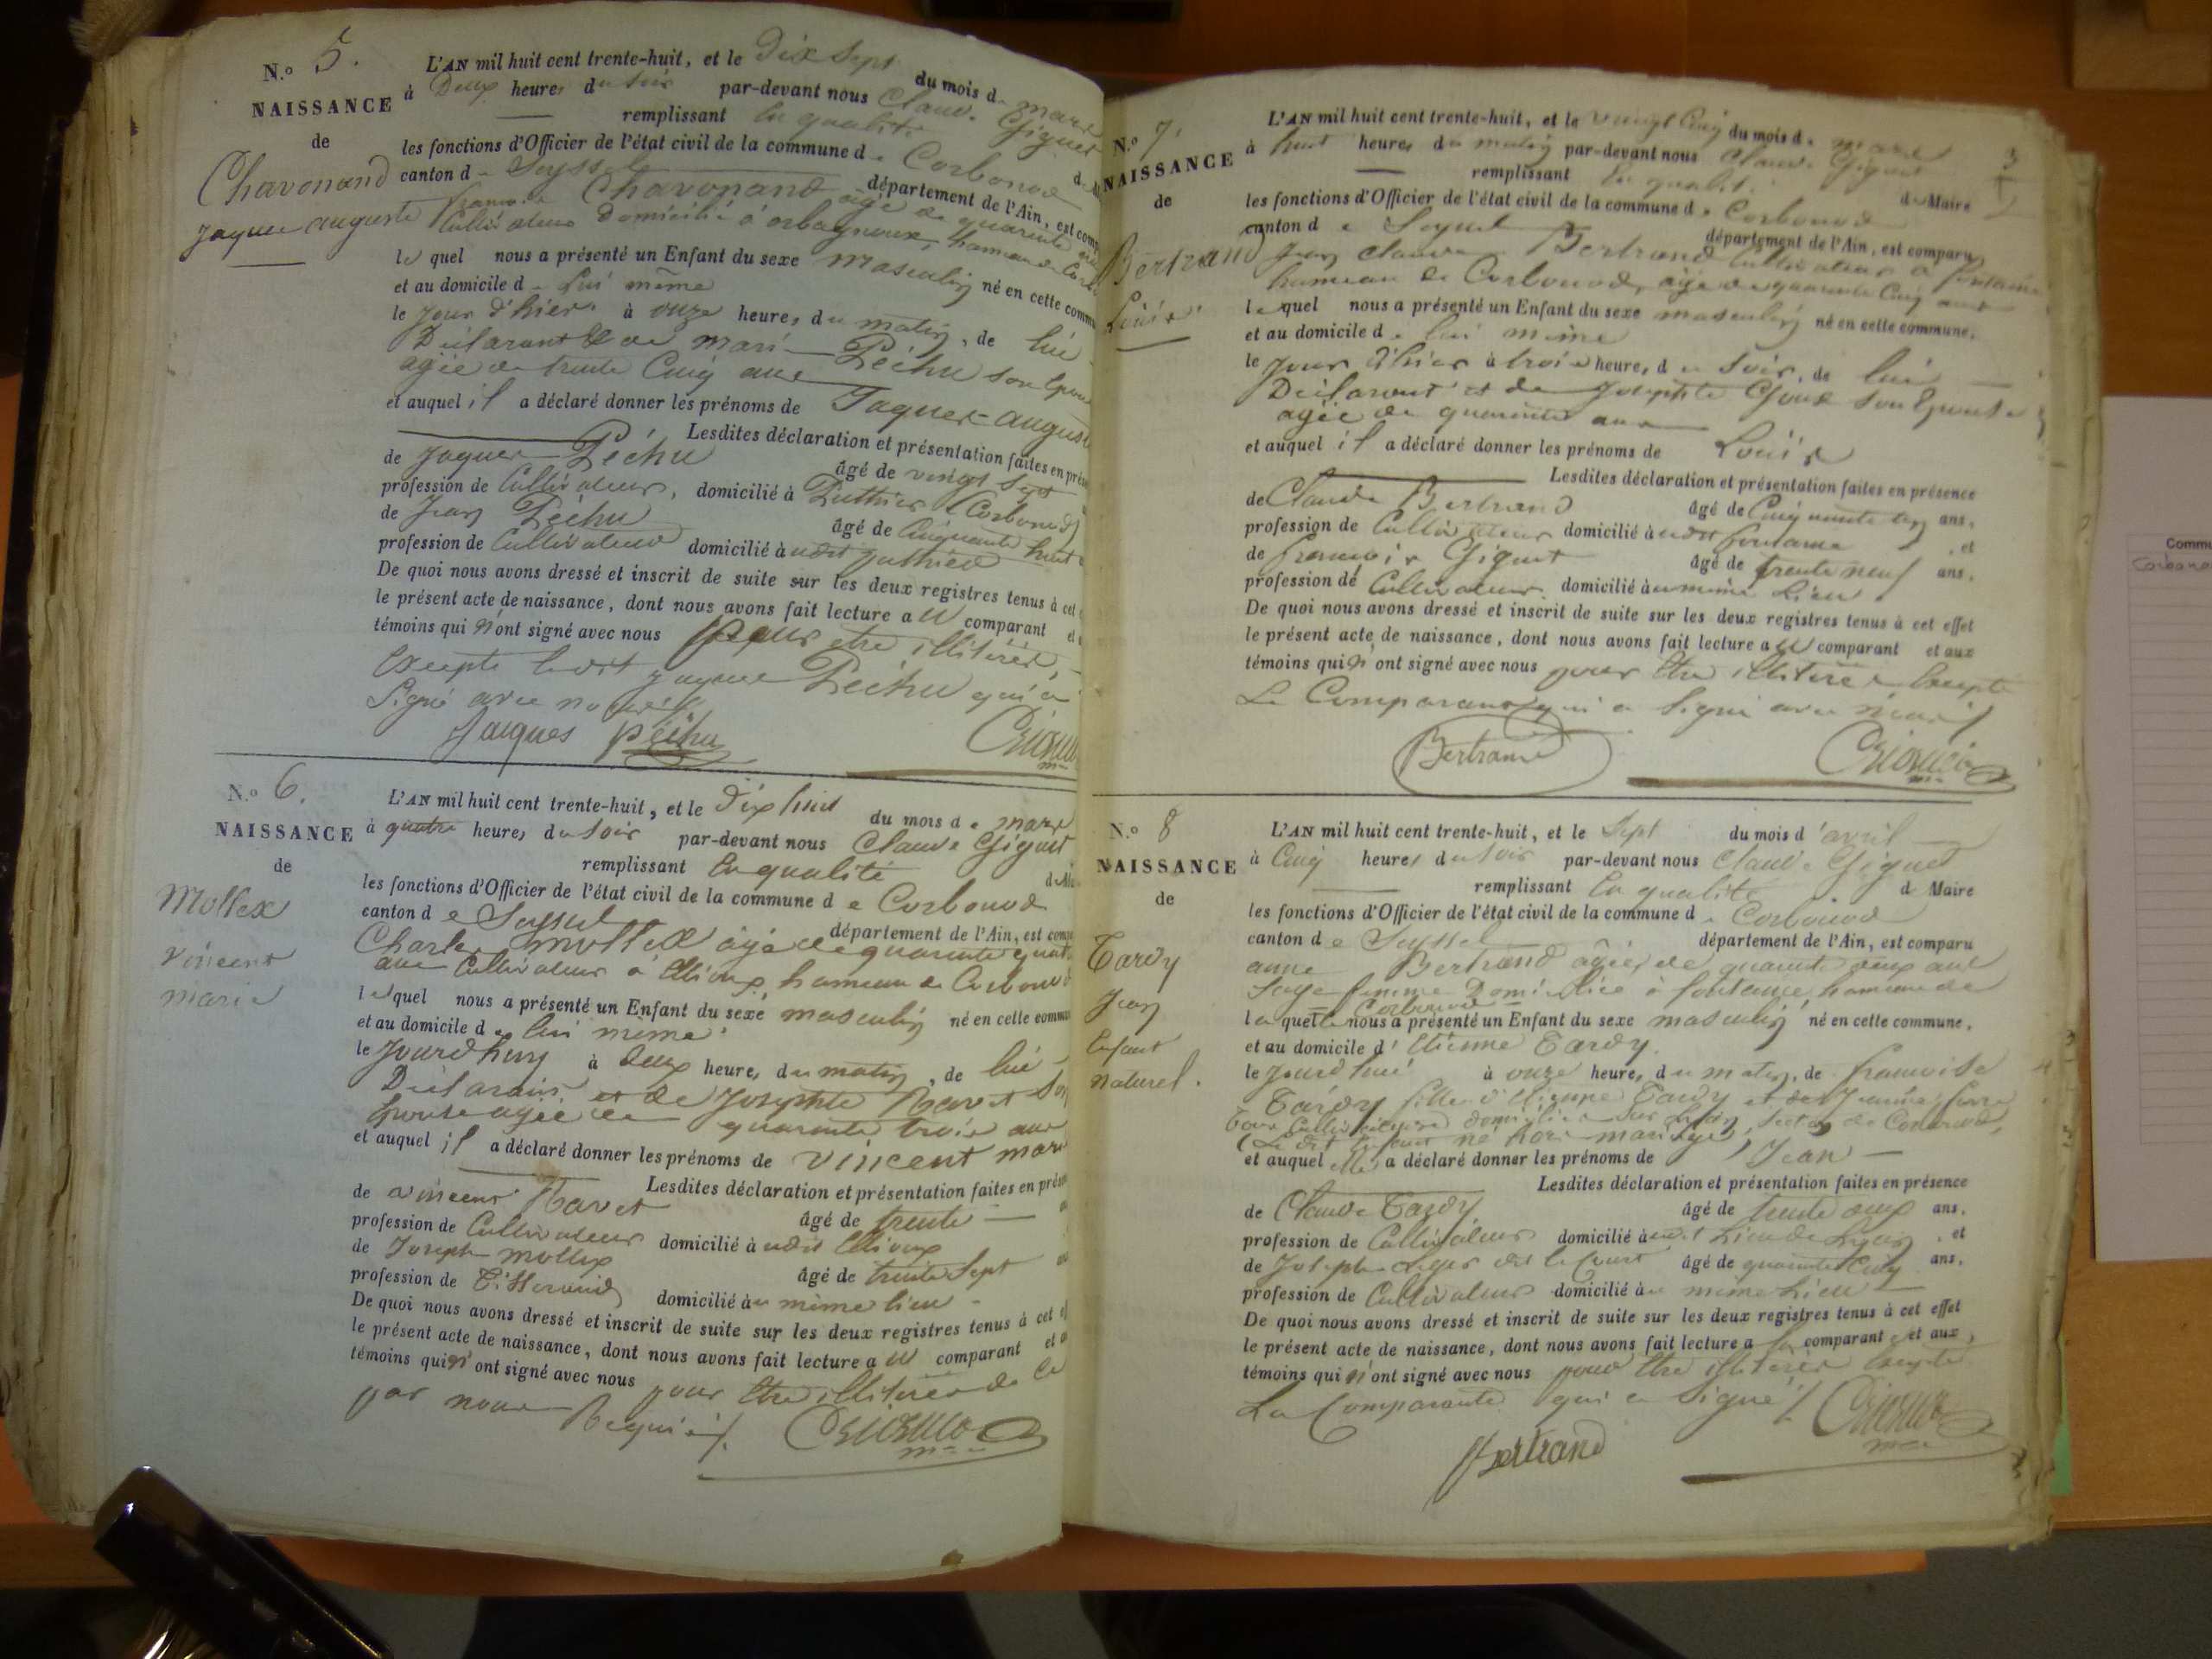 N.o 5.
NAISSANCE
de
Chavonand
jaques auguste
L'AN mil huit cent trente-huit, et le Dix Sept du mois de mars
à Deux heures du Soir par-devant nous Claude Giguet
remplissant En qualité
les fonctions d'Officier de l'état civil de la commune de Corbonod
canton de Seyssel département de l'Ain, est
françois Chavonand agé de quarante
Cultivateur Domicilié à orbagnoux, hameau de
lequel nous a présenté un Enfant du sexe masculin né en cette
et au domicile de lui même
le Jour d'hier à onze heures du matin, de lui
Déclarant & de marie Péchu son
agée de trente Cinq ans
et auquel il a déclaré donner les prénoms de Jaques auguste
Lesdites déclaration et présentation faites en
de Jaques Péchu âgé de vingt sept
profession de Cultivateur, domicilié à Puthier (Corbonod)
de Jean Péchu âgé de Cinquante huit
profession de Cultivateur domicilié à udit puthier
De quoi nous avons dressé et inscrit de suite sur les deux registres tenus à cet
le présent acte de naissance, dont nous avons fait lecture au comparant et
témoins qui n'ont signé avec nous pour être illitérés,
Excepté ledit jaques Péchu qui a
Signé avec nous
Jaques péchu
N.o 6.
NAISSANCE
de
Mollex
vincent
marie
L'AN mil huit cent trente-huit, et le dix huit du mois de mars
à quatre heures du Soir par-devant nous Claude Giguet
remplissant En qualité
les fonctions d'Officier de l'état civil de la commune de Corbonod
canton de Seyssel département de l'Ain, est
Charles mollex agé de quarante
ans Cultivateur à hameau de Corbonod
lequel nous a présenté un Enfant du sexe masculin né en cette
et au domicile de lui même
le Jourd'huy à deux heures du matin, de lui
Déclarant et de Josephte Ravet
Epouse agée de quarante trois ans
et auquel il a déclaré donner les prénoms de vincent
Lesdites déclaration et présentation faites en
de vincent Ravet âgé de trente
profession de Cultivateur domicilié à udit
de Joseph mollex âgé de trente Sept
profession de Tisserand domicilié au même lieu
De quoi nous avons dressé et inscrit de suite sur les deux registres tenus à cet
le présent acte de naissance, dont nous avons fait lecture au comparant et
témoins qui n'ont signé avec nous pour être illitérés de ce
par nous Requis
N.o 7.
NAISSANCE
de
Bertrand
Louis
3
L'AN mil huit cent trente-huit, et le vingt Cinq du mois de mars
à huit heures du matin par-devant nous Claude Giguet
remplissant En qualité de Maire
les fonctions d'Officier de l'état civil de la commune de Corbonod
canton de Seyssel département de l'Ain, est comparu
Jean Claude Bertrand Cultivateur à fontaine
hameau de Corbonod, agé de quarante Cinq ans
lequel nous a présenté un Enfant du sexe masculin né en cette commune,
et au domicile de lui même
le Jour d'hier à trois heures du Soir, de lui
Déclarant et de Josephte Son Epouse
agée de quarante ans
et auquel il a déclaré donner les prénoms de Louis
Lesdites déclaration et présentation faites en présence
de Claude Bertrand âgé de Cinquante ans,
profession de Cultivateur domicilié à udit fontaine, et
de françois Giguet âgé de trente neuf ans,
profession de Cultivateur domicilié au même Lieu
De quoi nous avons dressé et inscrit de suite sur les deux registres tenus à cet effet
le présent acte de naissance, dont nous avons fait lecture au comparant et aux
témoins qui n'ont signé avec nous pour être illitérés Excepté
Le Comparant qui a Signé avec nous
Bertrand
N.o 8
NAISSANCE
de
Tardy
Jean
Enfant
naturel.
L'AN mil huit cent trente-huit, et le Sept du mois d'avril
à Cinq heures du Soir par-devant nous Claude Giguet
remplissant En qualité de Maire
les fonctions d'Officier de l'état civil de la commune de Corbonod
canton de Seyssel département de l'Ain, est comparu
anne Bertrand agée de quarante deux ans
Sage femme Domiciliée à fontaine hameau de
Corbonod
laquelle nous a présenté un Enfant du sexe masculin né en cette commune,
et au domicile d'Etienne Tardy.
le Jourd'hui à onze heures du matin, de francoise
Tardy fille d'Etienne Tardy et de Jeanne
né hors mariage
et auquel elle a déclaré donner les prénoms de Jean
Lesdites déclaration et présentation faites en présence
de Claude Tardy âgé de trente deux ans,
profession de Cultivateur domicilié à udit Lieu de, et
de Joseph dit le Court âgé de quarante Cinq ans,
profession de Cultivateur domicilié au même Lieu
De quoi nous avons dressé et inscrit de suite sur les deux registres tenus à cet effet
le présent acte de naissance, dont nous avons fait lecture a la comparante et aux
témoins qui n'ont signé avec nous pour être illitérés Excepté
La Comparante qui a Signé
Bertrand